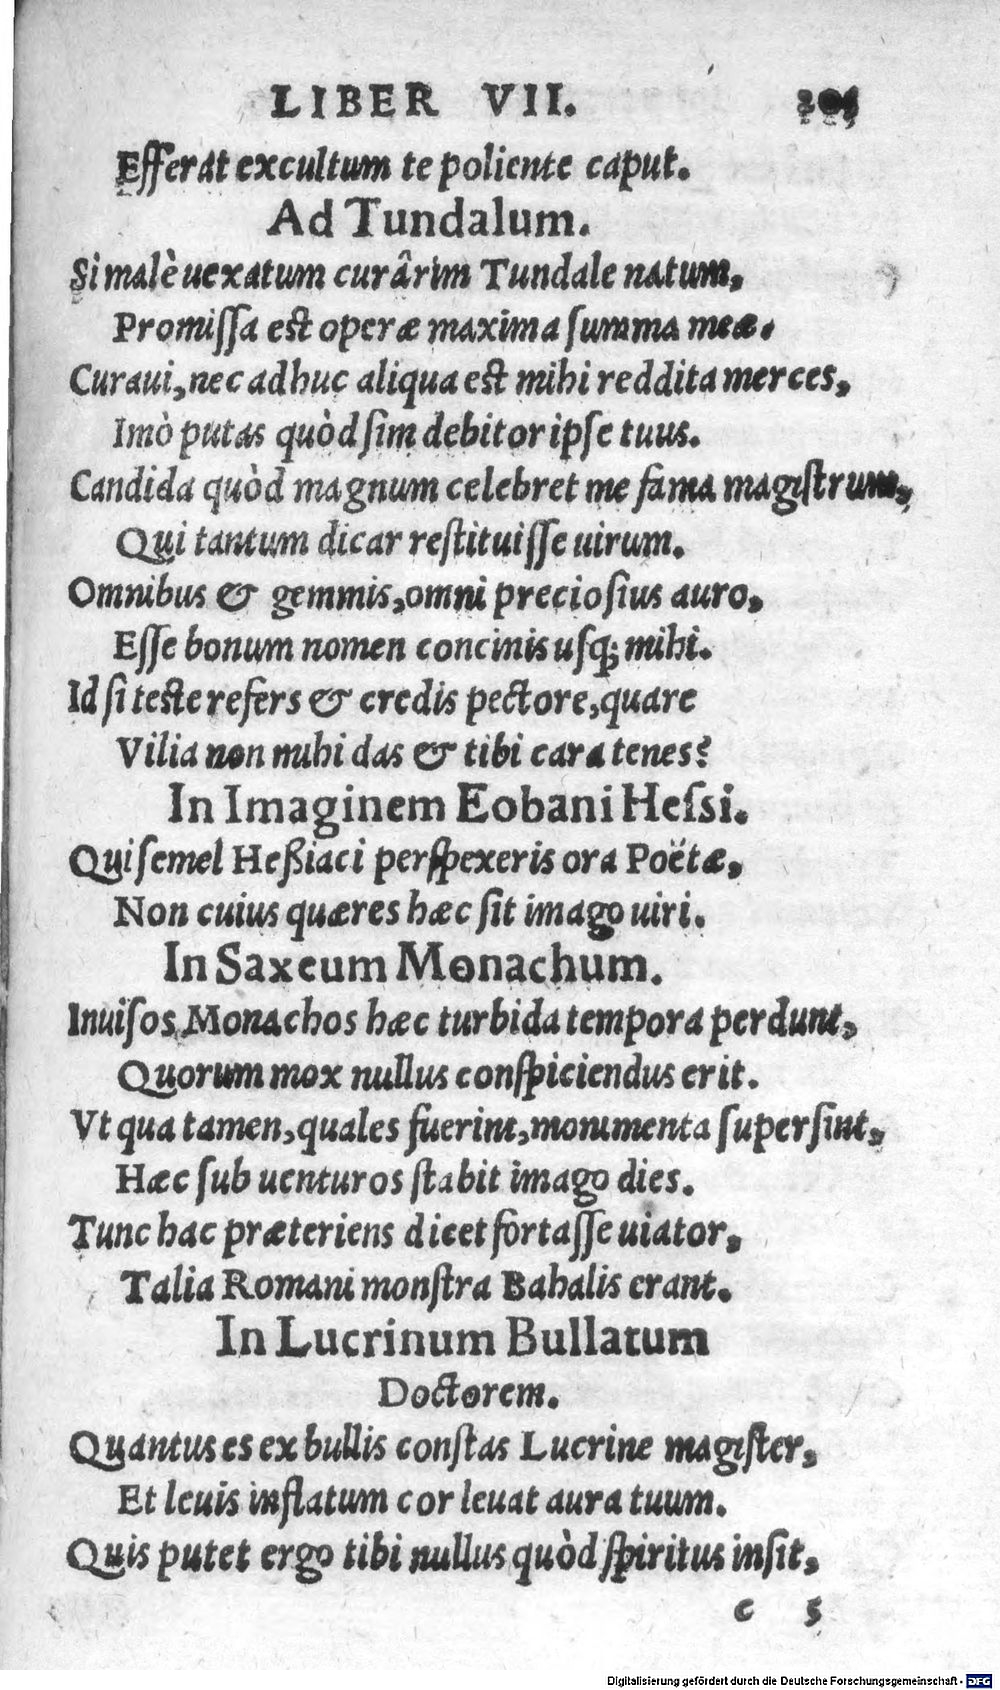 LIBER VII. 205
Efferat excultum te poliente caput.
Ad Tundalum.
Si malè uexatum curârim Tundale natum,
Promissa est operæ maxima summa meæ.
Curaui, nec adhuc aliqua est mihi reddita merces,
Imò putas quòd sim debitor ipse tuus.
Candida quòd magnum celebret me fama magistrum,
Qui tantum dicar restituisse uirum.
Omnibus & gemmis, omni preciosius auro,
Esse bonum nomen concinis usq; mihi.
Id si teste refers & credis pectore, quare
Vilia non mihi das & tibi cara tenes?
In Imaginem Eobani Hessi.
Qui semel Heßiaci perspexeris ora Poëtæ,
Non cuius quæres hæc sit imago uiri.
In Saxeum Monachum.
Inuisos Monachos hæc turbida tempora perdunt,
Quorum mox nullus conspiciendus erit.
Vt qua tamen, quales fuerint, monumenta supersint,
Hæc sub uenturos stabit imago dies.
Tunc hac præteriens dicet fortasse uiator,
Talia Romani monstra Bahalis erant.
In Lucrinum Bullatum
Doctorem.
Quantus es ex bullis constas Lucrine magister,
Et leuis inflatum cor leuat aura tuum.
Quis putet ergo tibi nullus quòd spiritus insit,
c 5
Digitalisierung gefördert durch die Deutsche Forschungsgemeinschaft - DFG